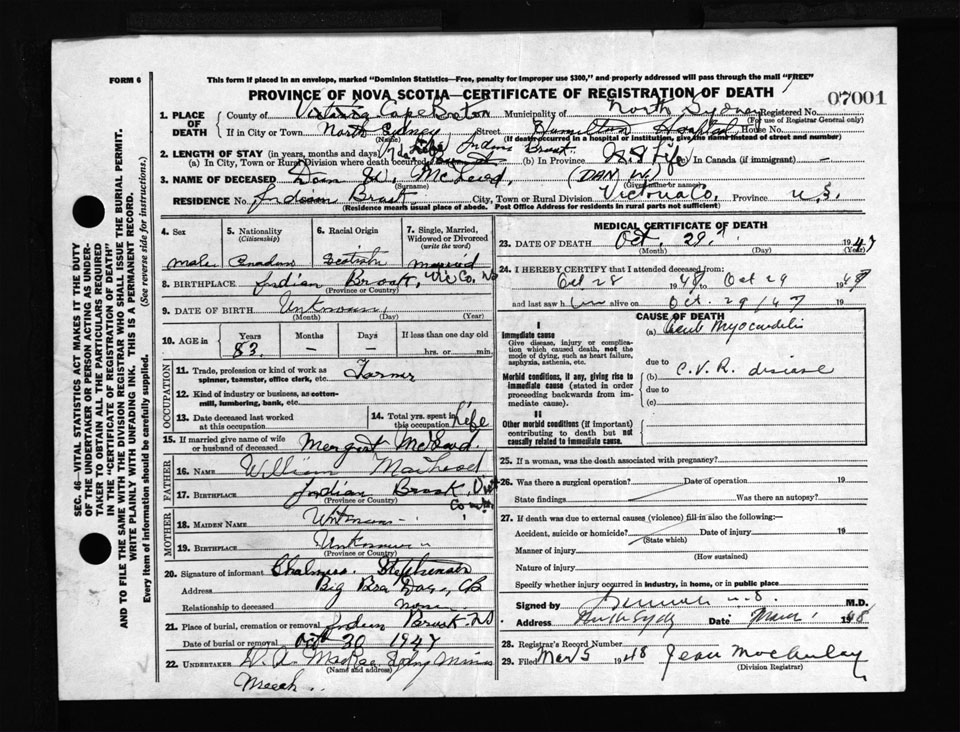 FORM 6
This form if placed in an envelope, marked "Dominion Statistics—Free, penalty for improper use $300," and properly addressed will pass through the mail "FREE"
PROVINCE OF NOVA SCOTIA—CERTIFICATE OF REGISTRATION OF DEATH
07001
1. PLACE OF DEATH
County of Victoria Cape Breton Municipality of North Sydney Registered No.
(For use of Registrar General only)
If in City or Town North Sydney Street Hamilton Hospital House No.
(Name) (If death occurred in a hospital or institution, give the name instead of street and number)
2. LENGTH OF STAY (in years, months and days) Life Indian Brook
(a) In City, Town or Rural Division where death occurred (b) In Province Life (c) In Canada (if immigrant) —
3. NAME OF DECEASED Dan W. McLeod, (DAN W.)
(Surname) (Given name or name)
RESIDENCE No. Indian Brook City, Town or Rural Division Victoria Co. Province N.S.
(Residence means usual place of abode. Post Office Address for residents in rural parts not sufficient)
4. Sex
male
5. Nationality
(Citizenship)
Canadian
6. Racial Origin
Scotish
7. Single, Married, Widowed or Divorced
(write the word)
married
8. BIRTHPLACE Indian Brook, Vic Co. NS
(Province or Country)
9. DATE OF BIRTH Unknown
(Month) (Day) (Year)
10. AGE in
Years Months Days If less than one day old
83 — — hrs. or min.
OCCUPATION
11. Trade, profession or kind of work as spinner, teamster, office clerk, etc. Farmer
12. Kind of industry or business, as cotton-mill, lumbering, bank, etc.
13. Date deceased last worked at this occupation
14. Total yrs. spent in this occupation Life
15. If married give name of wife or husband of deceased Margret McLeod
FATHER
16. NAME William MacLeod
17. BIRTHPLACE Indian Brook, Vict County
(Province or Country)
MOTHER
18. MAIDEN NAME Unknown
19. BIRTHPLACE Unknown
(Province or Country)
20. Signature of informant Chalmers Stephenson
Address Big Bra Dore, CB
Relationship to deceased none
21. Place of burial, cremation or removal Indian Brook. NS
Date of burial or removal Oct 30 1947
22. UNDERTAKER
(Name and address)
MEDICAL CERTIFICATE OF DEATH
23. DATE OF DEATH Oct. 29 1947
(Month) (Day) (Year)
24. I HEREBY CERTIFY that I attended deceased from:
Oct 28 194 Oct 29 194
and last saw him alive on Oct. 29/47 19
CAUSE OF DEATH
I
Immediate cause
Give disease, injury or complication which caused death, not the mode of dying, such as heart failure, asphyxia, asthenia, etc.
(a) Acute Myocarditis
due to
Morbid conditions, if any, giving rise to immediate cause (stated in order proceeding backwards from immediate cause).
(b) C.V.R. disease
due to
(c)
II
Other morbid conditions (if important) contributing to death but not causally related to immediate cause.
25. If a woman, was the death associated with pregnancy?
26. Was there a surgical operation? Date of operation 19
State findings Was there an autopsy?
27. If death was due to external causes (violence) fill in also the following:—
Accident, suicide or homicide? Date of injury 19
(State which)
Manner of injury
(How sustained)
Nature of injury
Specify whether injury occurred in industry, in home, or in public place
Signed by M.D.
Address North Sydney Date 1948
28. Registrar's Record Number
29. Filed Mar 5 1948 Jean MacAulay
(Division Registrar)
SEC. 46—VITAL STATISTICS ACT MAKES IT THE DUTY OF THE UNDERTAKER OR PERSON ACTING AS UNDERTAKER TO OBTAIN ALL THE PARTICULARS REQUIRED IN THE "CERTIFICATE OF REGISTRATION OF DEATH" AND TO FILE THE SAME WITH THE DIVISION REGISTRAR WHO SHALL ISSUE THE BURIAL PERMIT.
WRITE PLAINLY WITH UNFADING INK. THIS IS A PERMANENT RECORD.
Every item of information should be carefully supplied. (See reverse side for instructions.)